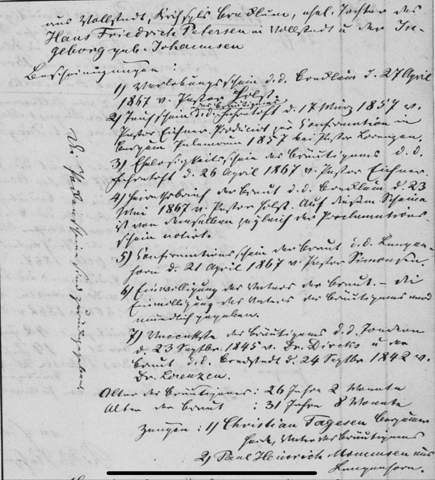 aus Vollstedt, Kirchsp. Bredstedt, ehel. Tochter des
Hans Friedrich Petersen in Vollstedt u der In-
geborg geb. Johannsen
Bescheinigungen:
1) Verlobungsschein d. d. Breklum d. 27 April
1867 v. Pastor Holst.
2) Taufschein d. d. d. 17 März 1857 v.
Pastor Eichner. zur Confirmation in
1857 bei Pastor Lorenzen.
3) Ehelosigkeitsschein des Bräutigams d. d.
d. 26 April 1867 v. Pastor Eichner.
4) der Braut d. d. Breklum d. 23
Mai 1867 v. Pastor Holst. Auf diesem Scheine
ist von demselben zugleich der Proclamations-
schein notirt.
5) Confirmationsschein der Braut d. d. Langen-
horn d. 21 April 1867 v. Pastor Simonsen.
6) Einwilligung des Vaters der Braut. – die
Einwilligung des Vaters des Bräutigams ward
mündlich gegeben.
7) Vaccinatste des Bräutigams d. d. Tondern
d. 23 Septbr. 1845 v. Dr. Dircks u der
Braut d. d. Bredstedt d. 24 Septbr 1842 v.
Dr. Lorenzen.
Alter des Bräutigams: 26 Jahre 2 Monate
Alter der Braut: 31 Jahre 8 Monate
Zeugen: 1) Christian Tagesen
Vater des Bräutigams
2) Paul Heinrich Mommsen aus
Langenhorn.
Die sind zurückgegeben